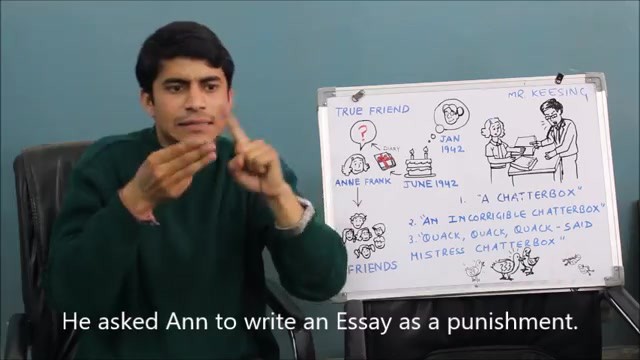 TRUE FRIEND
MR. KEESING
?
DIARY
JAN
1942
ANNE FRANK
JUNE 1942
1. "A CHATTERBOX"
2. "AN INCORRIGIBLE CHATTERBOX"
3. "QUACK, QUACK, QUACK - SAID
MISTRESS CHATTERBOX"
FRIENDS
He asked Ann to write an Essay as a punishment.